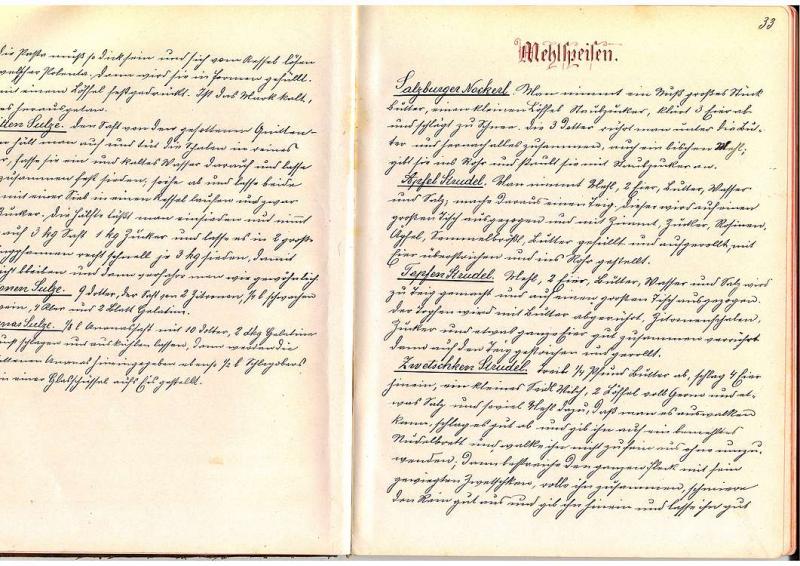 die Pasta muß so dick sein und sich vom Kessel lösen
welscher Polenta. Dann wird sie in Formen gefüllt.
mit einem Löffel festgedrückt. Ist das Mark kalt,
es herausgetan.
tten Sulze. Den Saft von den gesottenen Quitten-
hält man auf und tut die Schalen in reines
r, fasse sie ein und kaltes Wasser darauf und lasse
zusammen fest sieden, seihe ab und lasse beide
mit einer Sieb in einen Kessel laufen und zwar
Zucker. Die Hälfte läßt man einsieden und nimmt
auf 3 kg Saft 1 kg Zucker und lasse es in 2 große
pfannen recht schnell je 3 kg sieden, damit
licht bleiben und dann verfahre man wie gewöhnlich.
onen Sulze. 9 Dotter, der Saft von 2 Zitronen, ½ l schwachen
wein, 4 Eier und 2 Blatt Gelatin.
nas Sulze. ¼ l Ananassaft mit 10 Dotter, 2 dkg Gelatine
auf schlagen und auskühlen lassen, dann werden die
ittenen Ananas hineingegeben ebenso ½ l Schlagobers
in einer Glasschüssel aufs Eis gestellt.
33
Mehlspeisen.
Salzburger Nockerl. Man nimmt ein Nuß großes Stück
Butter, einen kleinen Löffel Staubzucker, klärt 3 Eier ab
und schlägt zu Schnee. Die 3 Dotter rührt man unter die But-
ter und hernach alles zusammen, auch ein bischen Mehl;
gibt sie ins Rohr und stäubt sie mit Staubzucker an.
Apfel Strudel. Man nimmt Mehl, 2 Eier, Butter, Wasser
und Salz, mache daraus einen Teig. Dieser wird auf einen
großen Tisch ausgezogen und mit Zimmt, Zucker, Rosinen,
Äpfel, Semmelbrößl, Butter gefüllt und aufgerollt, mit
Eier überstrichen und ins Rohr gestellt.
Topfen Strudel. Mehl, 2 Eier, Butter, Wasser und Salz wird
zu Teig gemacht und auf einen großen Tisch ausgezogen.
Der Topfen wird mit Butter abgerührt, Zitronenschalen,
Zucker und etwas ganze Eier gut zusammen verrührt
dann auf den Teig gestrichen und gerollt.
Zwetschken Strudel. Treib ¼ Pfund Butter ab, schlag 4 Eier
hinein, ein kleines Seidl Milch, 2 Löffel voll Germ und et-
was Salz und soviel Mehl dazu, daß man es auswalken
kann, schlag es gut ab und gib ihn auf ein bemehltes
Nudelbrett und walke ihn nicht zu fein aus ohne umzu-
wenden; dann bestreiche den ganzen Fleck mit fein
gewiegten Zwetschken, rolle ihn zusammen, schmiere
den Rein gut aus und gib ihn hinein und lasse ihn gut